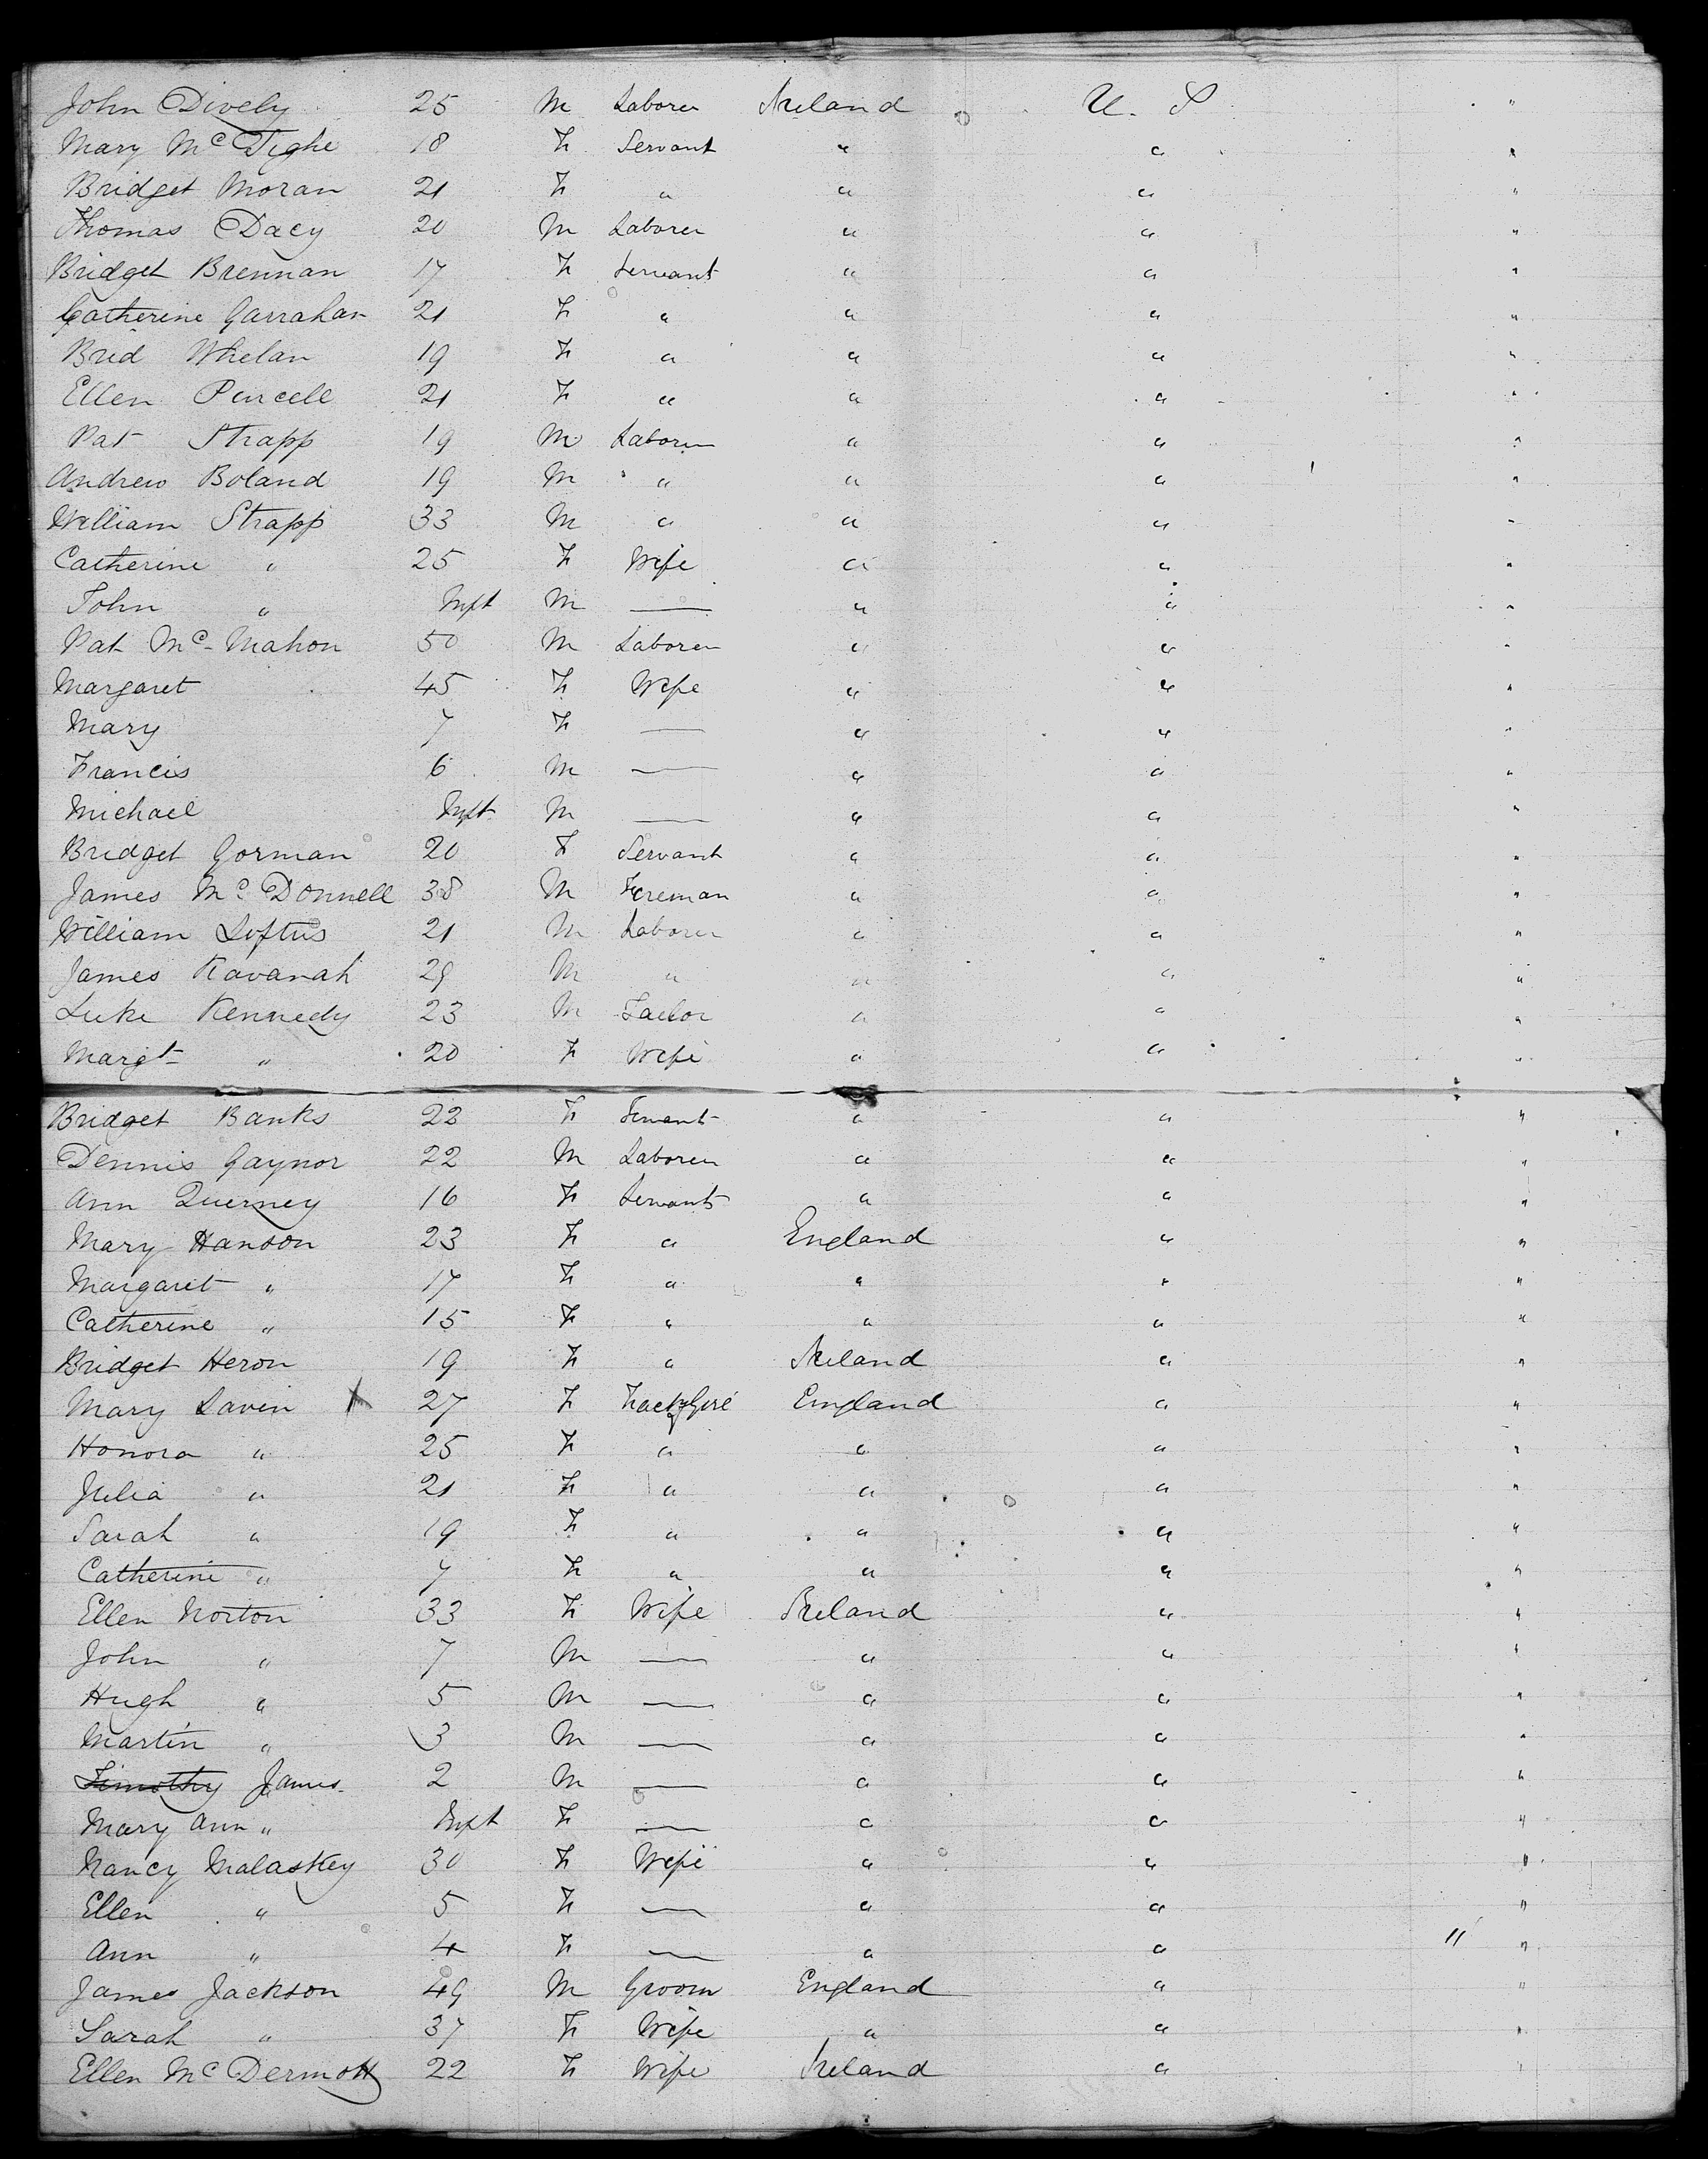 John Dively 25 M Laborer Ireland U. S "
Mary McTighe 18 F Servant " " "
Bridget Moran 21 F " " " "
Thomas Dacy 20 M Laborer " " "
Bridget Brennan 17 F Servant " " "
Catherine Garrahan 21 F " " " "
Brid Whelan 19 F " " " "
Ellen Purcell 21 F " " " "
Pat Strapp 19 M Laborer " " "
Andrew Boland 19 M " " " "
William Strapp 33 M " " " "
Catherine " 25 F Wife " " "
John " Inft M — " " "
Pat McMahon 50 M Laborer " " "
Margaret 45 F Wife " " "
Mary 7 F — " " "
Francis 6 M — " " "
Michael Inft M — " " "
Bridget Gorman 20 F Servant " " "
James McDonnell 38 M Foreman " " "
William Loftus 21 M Laborer " " "
James Kavanah 29 M " " " "
Luke Kennedy 23 M Tailor " " "
Margt " 20 F Wife " " "
Bridget Banks 22 F Servant " " "
Dennis Gaynor 22 M Laborer " " "
Ann Querney 16 F Servant " " "
Mary Hanson 23 F " England " "
Margaret " 17 F " " " "
Catherine " 15 F " " " "
Bridget Heron 19 F " Ireland " "
Mary Lavin X 27 F Facty Girl England " "
Honora " 25 F " " " "
Julia " 21 F " " " "
Sarah " 19 F " " " "
Catherine " 7 F " " " "
Ellen Norton 33 F Wife Ireland " "
John " 7 M — " " "
Hugh " 5 M — " " "
Martin " 3 M — " " "
Timothy James " 2 M — " " "
Mary Ann " Inft F — " " "
Nancy Malaskey 30 F Wife " " "
Ellen " 5 F — " " "
Ann " 4 F — " " " "
James Jackson 49 M Groom England " "
Sarah " 37 F Wife " " "
Ellen McDermott 22 F Wife Ireland " "